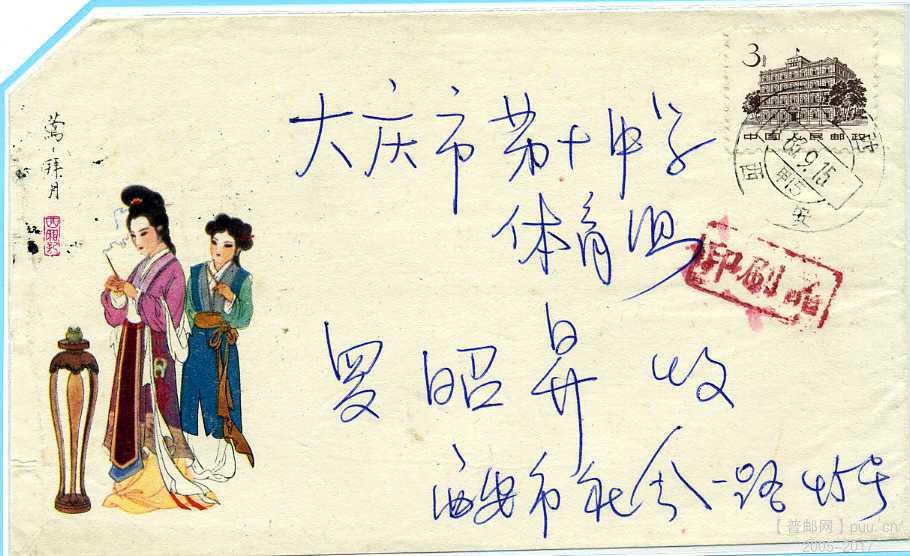 大庆市第十中学
体育组
罗昭昇 收
西安市北全一路 45号
莺莺拜月
西厢记
3分
中国人民邮政
西安
83.9.15
印刷品
【普邮网】puu.cn
2005-2017